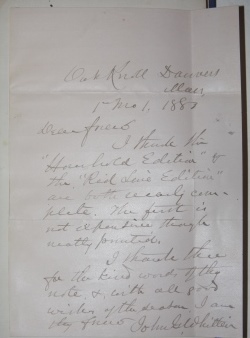 Oak Knoll Danvers
Mass
1 Mo 1, 188
Dear friend
I think the
"Household Edition" &
the "Red Line Edition"
are both nearly com-
plete. The first is
not expensive though
neatly printed.
I thank thee
for the kind words of thy
note, & with all good
wishes of the season I am
thy friend
John G. Whittier